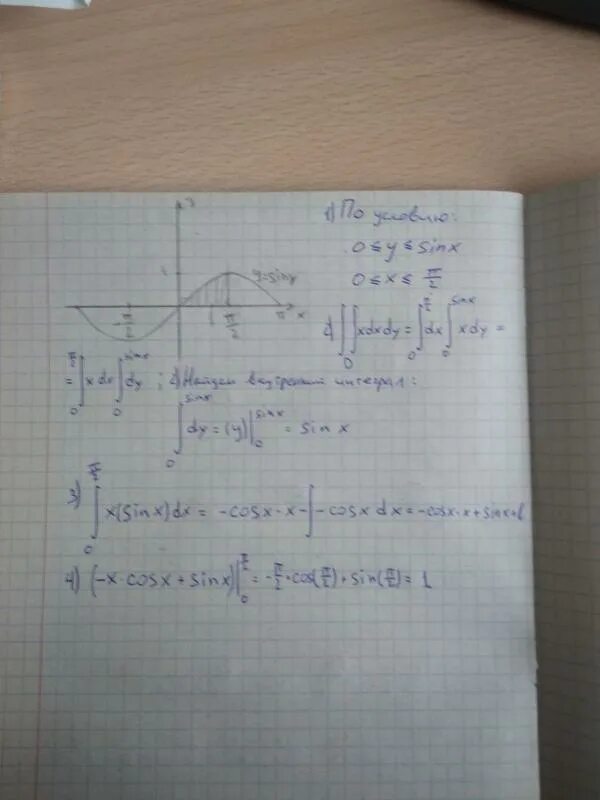 y
1) По условию:
0 ≤ y ≤ sinx
1 y=sinx
0 ≤ x ≤ π/2
-π/2 1 π/2 π x
∫₀^{π/2} dx ∫₀^{sinx} x dy =
∬ x dx dy =
= ∫₀^{π/2} x dx ∫₀^{sinx} dy ; 2) Найдем внутренний интеграл:
∫₀^{sinx} dy = (y)|₀^{sinx} = sin x
3) ∫₀^{π/2} x(sinx)dx = -cosx·x - ∫ -cosx dx = -cosx·x + sinx+
4) (-x·cosx + sinx)|₀^{π/2} = -π/2·cos(π/2) + sin(π/2) = 1